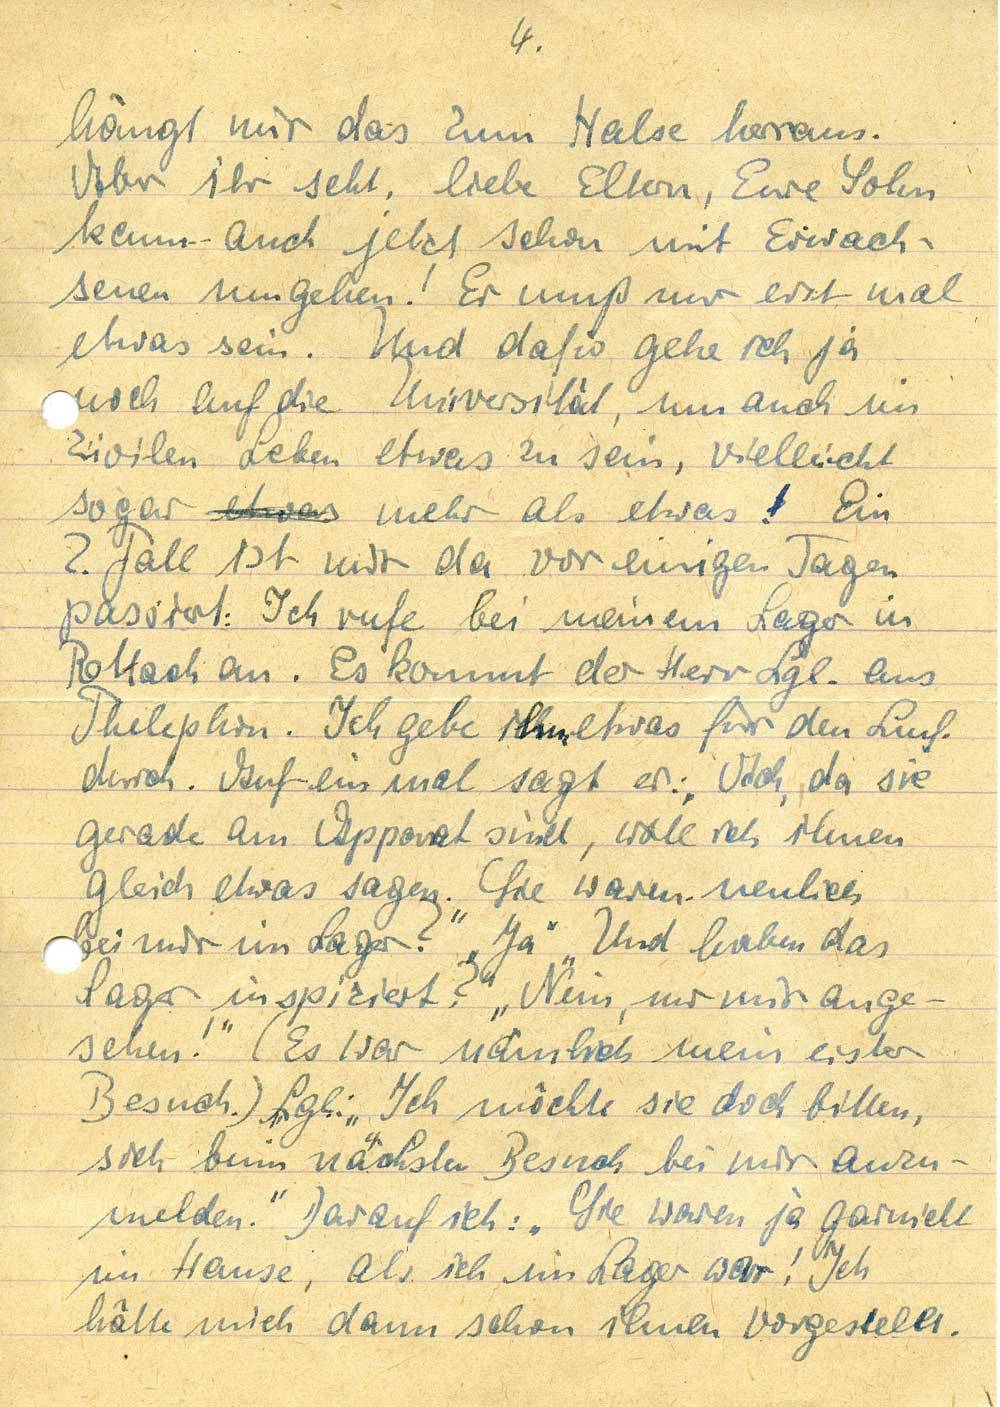 4.
hängt mir das zum Halse heraus.
Aber ihr seht, liebe Eltern, Eure Sohn
kann auch jetzt schon mit Erwach-
senen umgehen! Er muß nur erst mal
etwas sein. Und dafür gehe ich ja
noch auf die Universität, um auch im
zivilen Leben etwas zu sein, vielleicht
sogar etwas mehr als etwas! Ein
2. Fall ist mir da vor einigen Tagen
passirt: Ich rufe bei meinem Lager in
Rottach an. Es kommt der Herr Lgl. ans
Thelephon. Ich gebe ihm etwas für den Luf.
durch. Auf einmal sagt er: „Ach, da sie
gerade am Apparat sind, will ich ihnen
gleich etwas sagen. Sie waren neulich
bei mir im Lager?" „Ja" „Und haben das
Lager inspiziert?" „Nein, nur mir ange-
sehen!" (Es war nämlich mein erster
Besuch.) Lgl.: „Ich möchte sie doch bitten,
sich beim nächsten Besuch bei mir anzu-
melden." Darauf ich: „Sie waren ja garnicht
im Hause, als ich im Lager war! Ich
hätte mich dann schon ihnen vorgestellt.